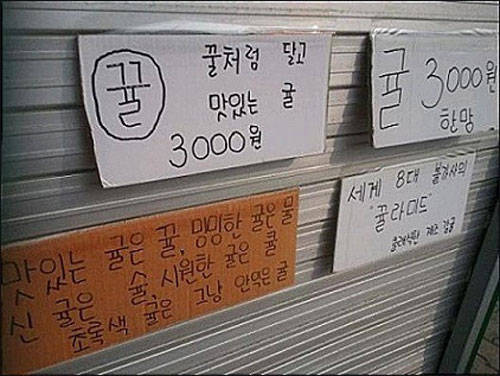 뀰
꿀처럼 달고
맛있는 귤
3000원
귤 3000원
한망
맛있는 귤은 꿀, 밍밍한 귤은 물
신 귤은 술, 시원한 귤은 쿨
초록색 귤은 그냥 안익은 귤
세계 8대 불가사의
"귤라미드"
제주 감귤